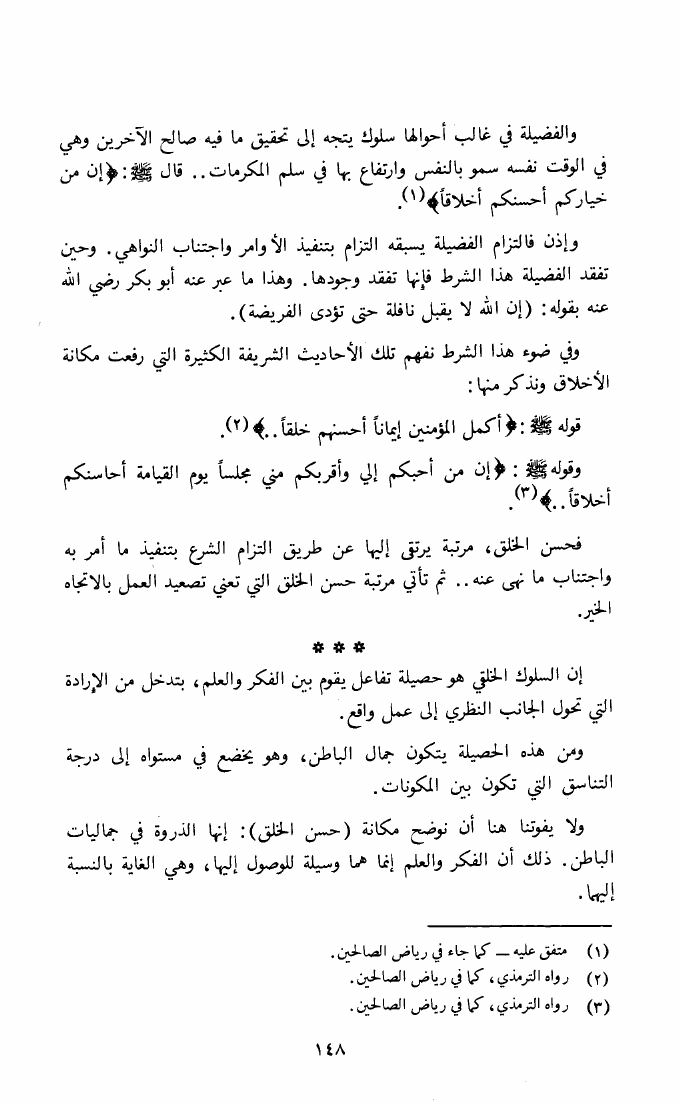 والفضيلة في غالب أحوالها سلوك يتجه إلى تحقيق ما فيه صالح الآخرين وهي
في الوقت نفسه سمو بالنفس وارتفاع بها في سلم المكرمات.. قال ﷺ: ﴿إن من
خياركم أحسنكم أخلاقاً﴾(١).
وإذن فالتزام الفضيلة يسبقه التزام بتنفيذ الأوامر واجتناب النواهي. وحين
تفقد الفضيلة هذا الشرط فإنها تفقد وجودها. وهذا ما عبر عنه أبو بكر رضي الله
عنه بقوله: (إن الله لا يقبل نافلة حتى تؤدى الفريضة).
وفي ضوء هذا الشرط نفهم تلك الأحاديث الشريفة الكثيرة التي رفعت مكانة
الأخلاق ونذكر منها:
قوله ﷺ: ﴿أكمل المؤمنين إيماناً أحسنهم خلقاً..﴾(٢).
وقوله ﷺ: ﴿إن من أحبكم إلي وأقربكم مني مجلساً يوم القيامة أحاسنكم
أخلاقاً..﴾(٣).
فحسن الخلق، مرتبة يرتقى إليها عن طريق التزام الشرع بتنفيذ ما أمر به
واجتناب ما نهى عنه.. ثم تأتي مرتبة حسن الخلق التي تعني تصعيد العمل بالاتجاه
الخير.
* * *
إن السلوك الخلقي هو حصيلة تفاعل يقوم بين الفكر والعلم، بتدخل من الإرادة
التي تحول الجانب النظري إلى عمل واقع.
ومن هذه الحصيلة يتكون جمال الباطن، وهو يخضع في مستواه إلى درجة
التناسق التي تكون بين المكونات.
ولا يفوتنا هنا أن نوضح مكانة (حسن الخلق): إنها الذروة في جماليات
الباطن. ذلك أن الفكر والعلم إنما هما وسيلة للوصول إليها، وهي الغاية بالنسبة
إليهما.
(١) متفق عليه — كما جاء في رياض الصالحين.
(٢) رواه الترمذي، كما في رياض الصالحين.
(٣) رواه الترمذي، كما في رياض الصالحين.
١٤٨